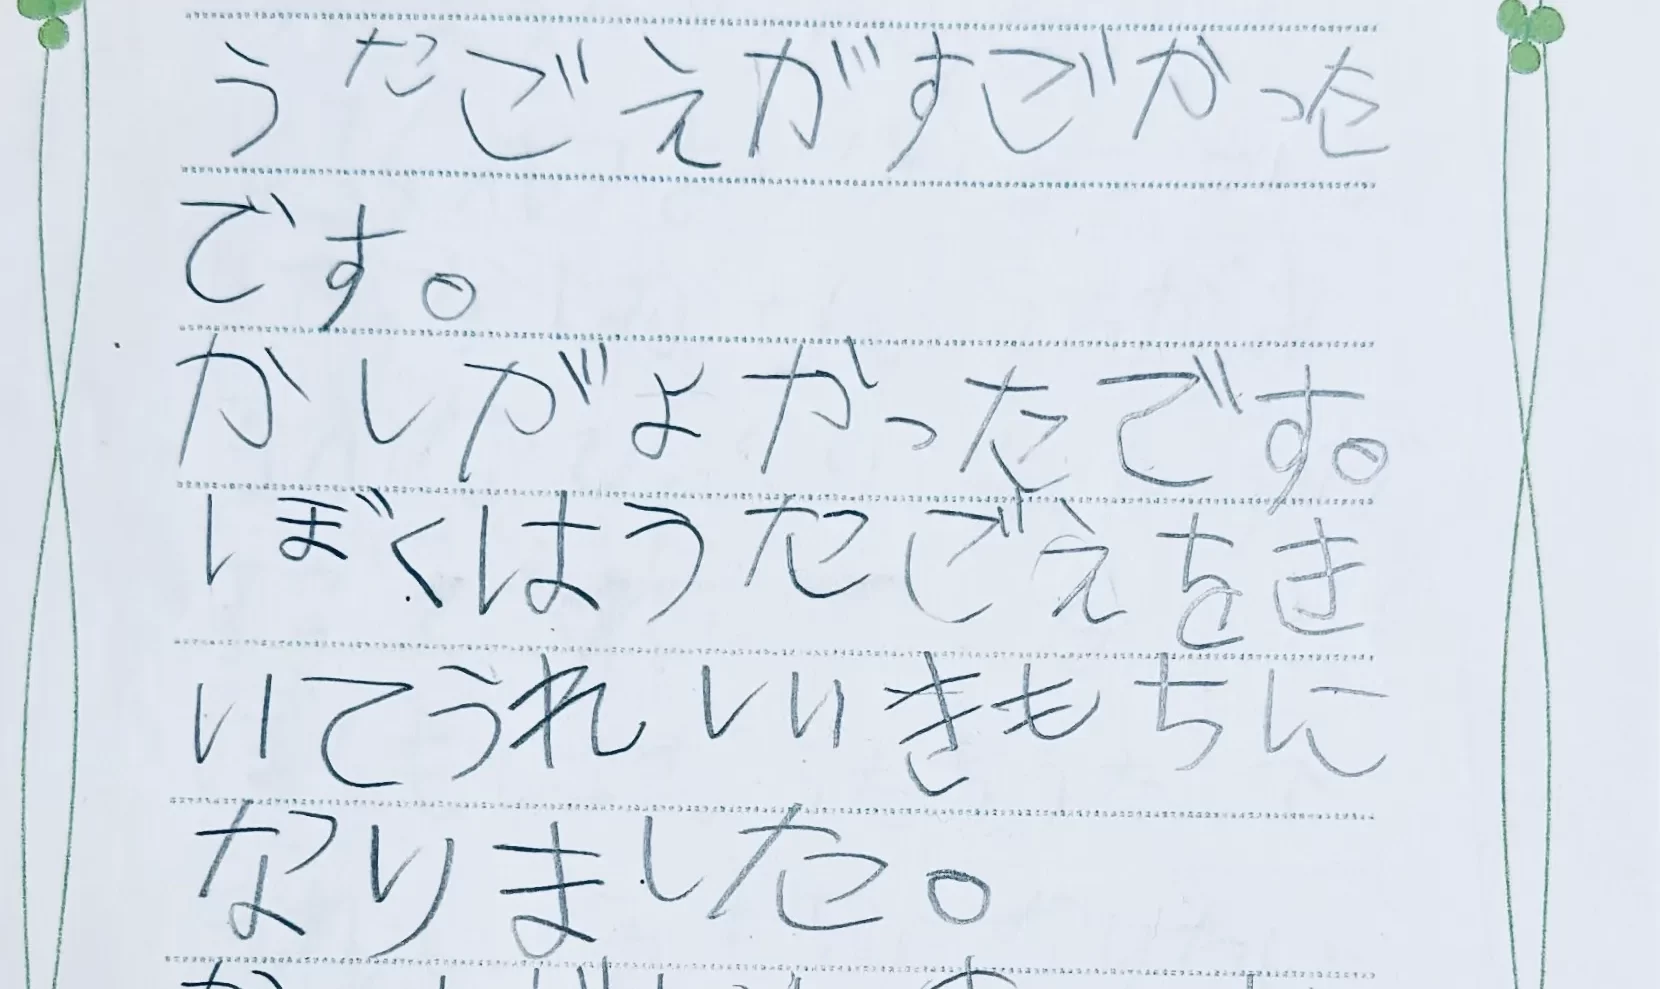 うたごえがすごかった
です。
かしがよかったです。
ぼくはうたごえをき
いてうれしいきもちに
なりました。